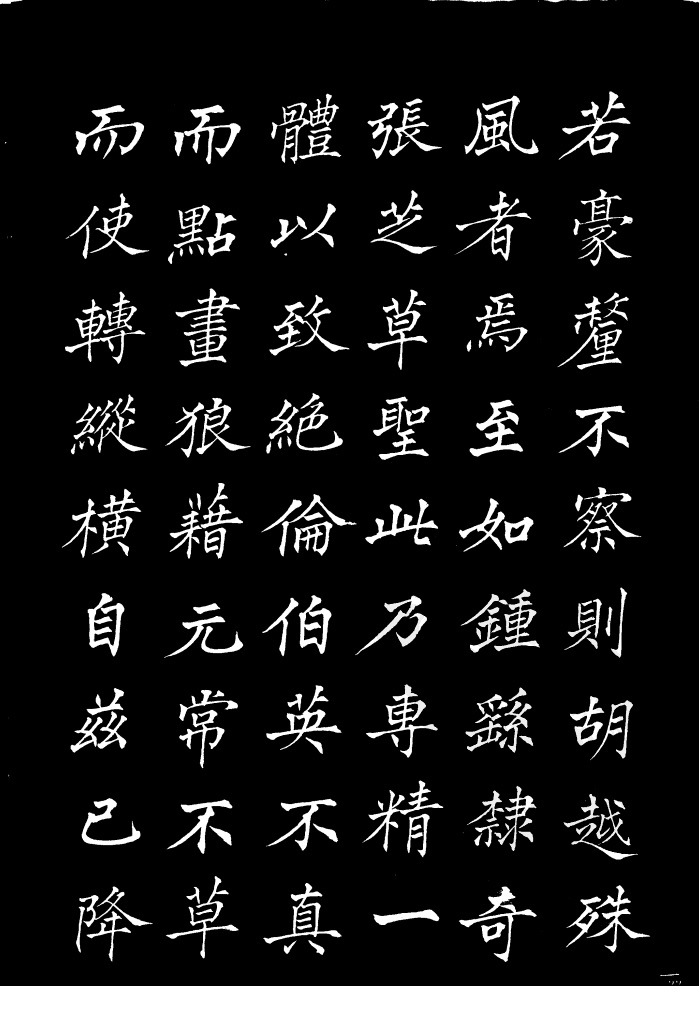 若豪釐不察則胡越殊
風者焉至如鍾繇隸奇
張芝草聖此乃專精一
體以致絕倫伯英不真
而點畫狼藉元常不草
而使轉縱橫自茲已降